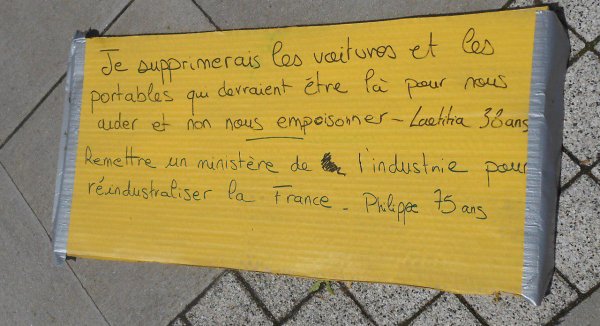 Je supprimerais les voitures et les
portables qui devraient être là pour nous
aider et non nous empoisonner - Laetitia 38 ans
Remettre un ministère de l'industrie pour
réindustraliser la France. Philippe 75 ans